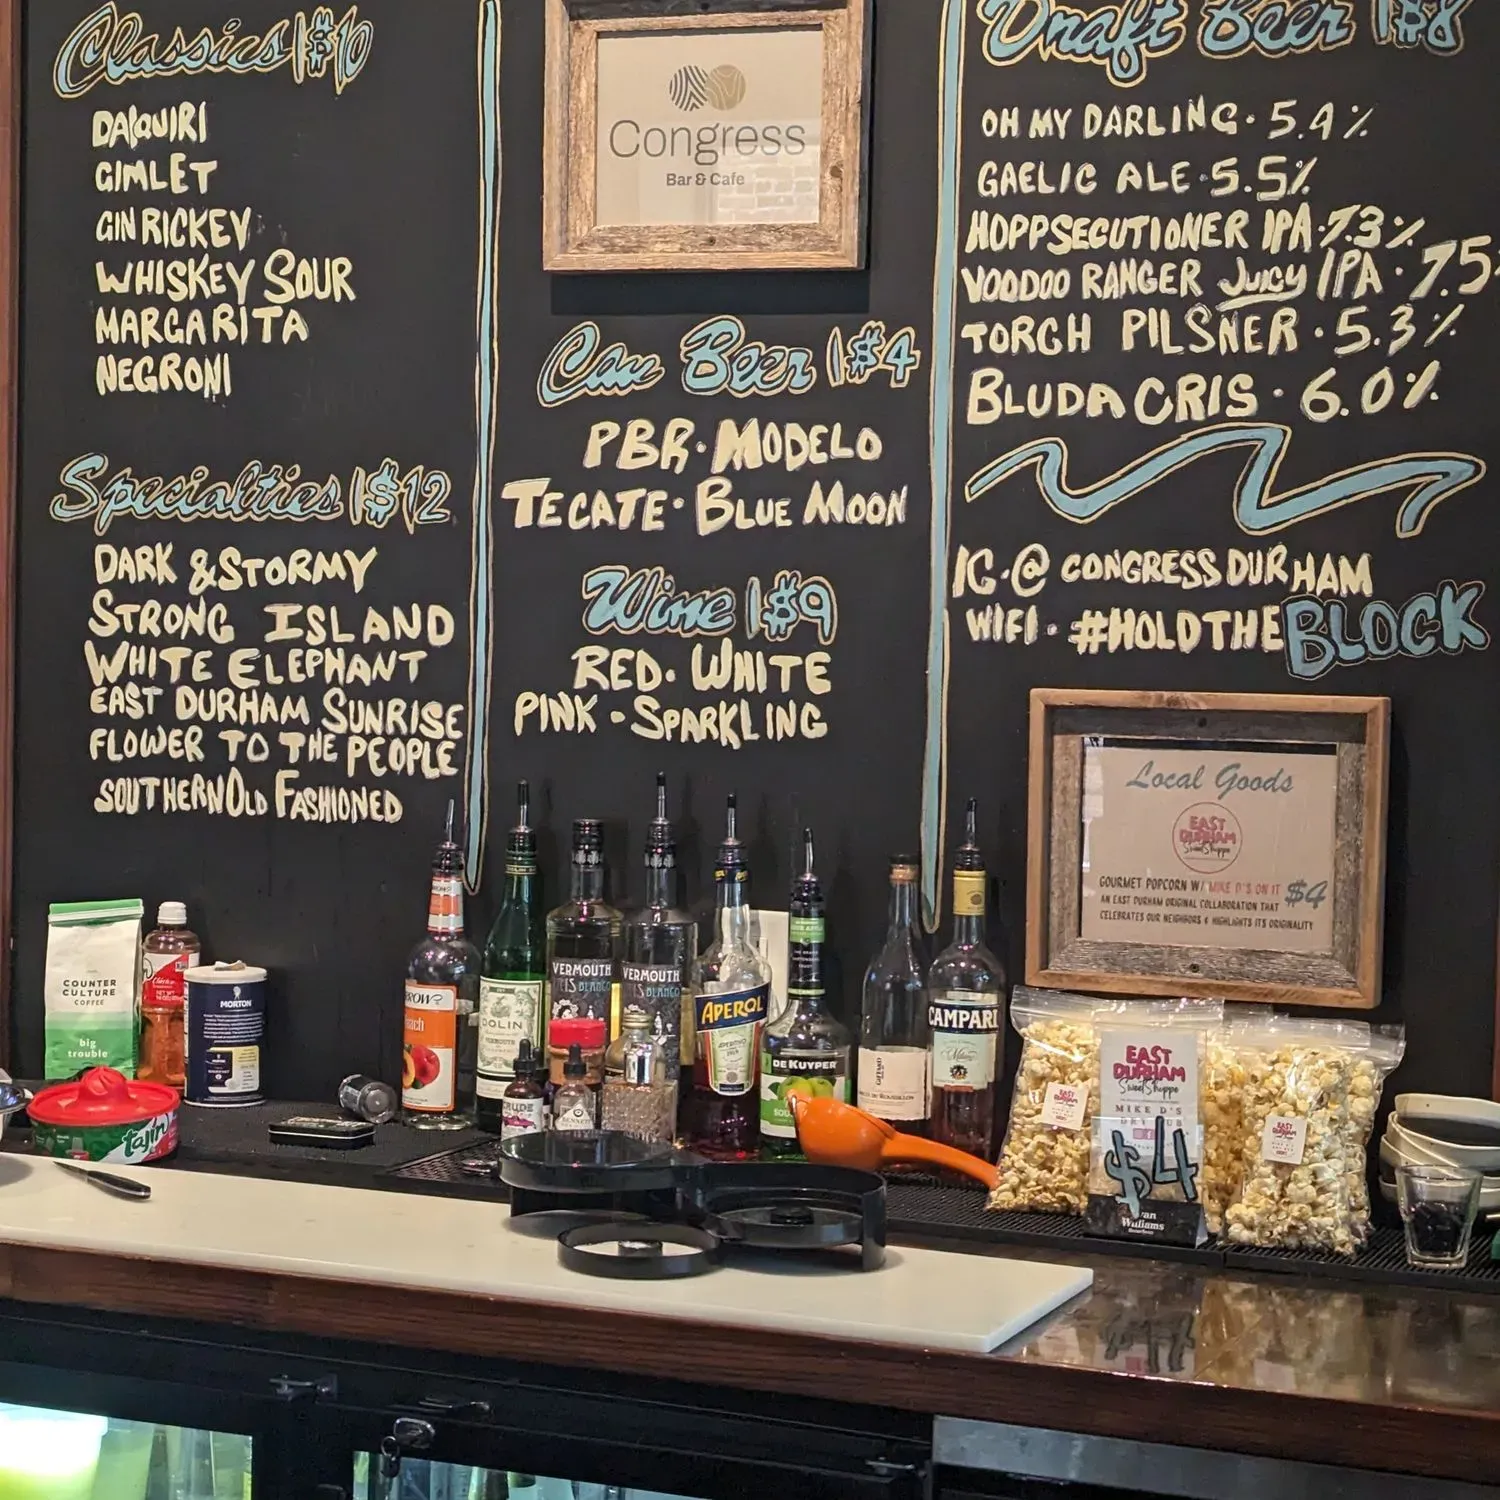 Classics | $10
DAIQUIRI
GIMLET
GIN RICKEY
WHISKEY SOUR
MARGARITA
NEGRONI
Specialties | $12
DARK & STORMY
STRONG ISLAND
WHITE ELEPHANT
EAST DURHAM SUNRISE
FLOWER TO THE PEOPLE
SOUTHERN OLD FASHIONED
Congress
Bar & Cafe
Can Beer | $4
PBR · MODELO
TECATE · BLUE MOON
Wine | $9
RED · WHITE
PINK · SPARKLING
Draft Beer | $8
OH MY DARLING · 5.4%
GAELIC ALE · 5.5%
HOPPSECUTIONER IPA · 7.3%
VOODOO RANGER JUICY IPA · 7.5
TORCH PILSNER · 5.3%
BLUDACRIS · 6.0%
IG · @ CONGRESSDURHAM
WIFI · #HOLDTHEBLOCK
Local Goods
EAST
DURHAM
Sweet Shoppe
GOURMET POPCORN W/ MIKE D'S ON IT $4
AN EAST DURHAM ORIGINAL COLLABORATION THAT
CELEBRATES OUR NEIGHBORS & HIGHLIGHTS ITS ORIGINALITY
COUNTER
CULTURE
COFFEE
big
trouble
MORTON
Tajín
DOLIN
VERMOUTH
VERMOUTH
BLANCO
APEROL
DEKUYPER
GIFFARD
CAMPARI
EAST
DURHAM
Sweet Shoppe
MIKE D'S
$4
Williams